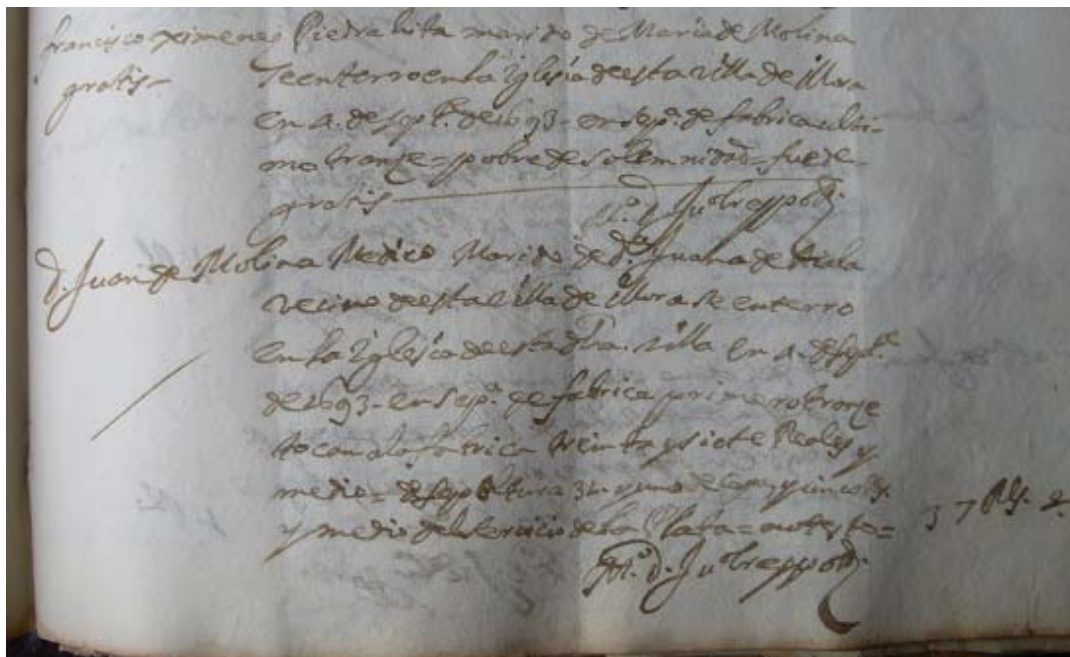 francisco ximenes Piedra hita marido de Maria de Molina
gratis - Se enterro en la Yglesia de esta villa de Yllora
en 4. de sepe. de 1693 - en sepa. de fabrica ulti-
mo tranze = pobre de solemnidad = fue de
gratis
D. Juan de Molina Medico Marido de Da. Juana de
vecino de esta villa de Yllora se enterro
en la Yglesia de esta dha. villa en 4. de sepe.
de 1693 - en sepa. de fabrica primero tranze
toca a la fabrica treinta y siete Reales y
medio = de sepultura y uno de y cinco Rs.
y medio del servicio de la Plata = no = 37 Rs.